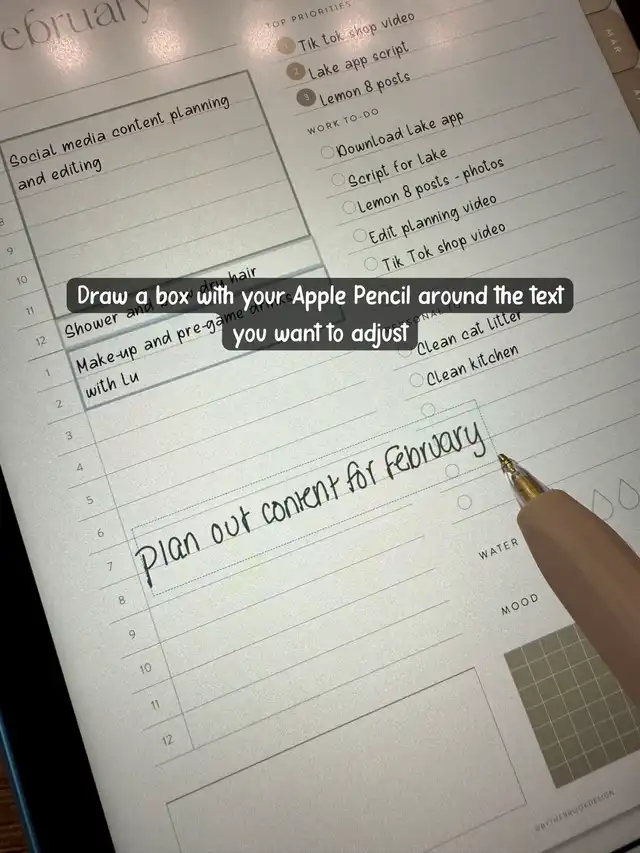 ebruary
TOP PRIORITIES
1 Tik tok shop video
2 Lake app script
3 Lemon 8 posts
MAR
Social media content planning
and editing
WORK TO-DO
Download Lake app
Script for Lake
Lemon 8 posts - photos
Edit planning video
Tik Tok shop video
8
9
10
11
12
1
2
3
4
5
6
7
8
9
10
11
12
Shower and dry hair
Make-up and pre-game drinks
with Lu
Draw a box with your Apple Pencil around the text
you want to adjust
Clean cat litter
Clean kitchen
Plan out content for February
WATER
MOOD
@BYTHEBROOKDESIGN